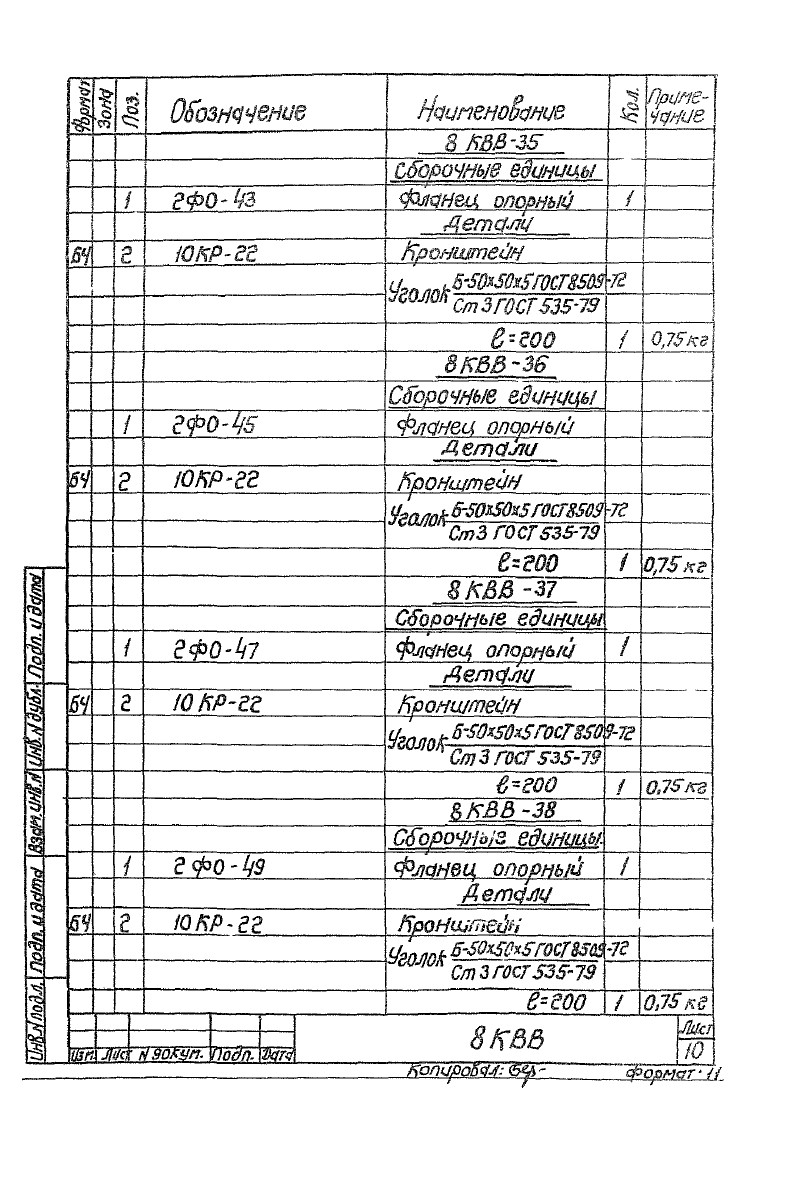 Формат Зона Поз. Обозначение Наименование Кол. Приме-
чание
8 КВВ-35
Сборочные единицы
1 2ФО-43 Фланец опорный 1
Детали
БЧ 2 10КР-22 Кронштейн
Уголок Б-50х50х5 ГОСТ 8509-72
Ст 3 ГОСТ 535-79
ℓ=200 1 0,75 кг
8 КВВ-36
Сборочные единицы
1 2ФО-45 Фланец опорный
Детали
БЧ 2 10КР-22 Кронштейн
Уголок Б-50х50х5 ГОСТ 8509-72
Ст 3 ГОСТ 535-79
ℓ=200 1 0,75 кг
8 КВВ-37
Сборочные единицы
1 2ФО-47 Фланец опорный 1
Детали
БЧ 2 10КР-22 Кронштейн
Уголок Б-50х50х5 ГОСТ 8509-72
Ст 3 ГОСТ 535-79
ℓ=200 1 0,75 кг
8 КВВ-38
Сборочные единицы
1 2ФО-49 Фланец опорный 1
Детали
БЧ 2 10КР-22 Кронштейн
Уголок Б-50х50х5 ГОСТ 8509-72
Ст 3 ГОСТ 535-79
ℓ=200 1 0,75 кг
Подп. и дата
Инв. N дубл.
Взам. инв. N
Подп. и дата
Инв. N подл.
Изм. Лист N докум. Подп. Дата
8 КВВ
Лист
10
Копировал: Формат 11